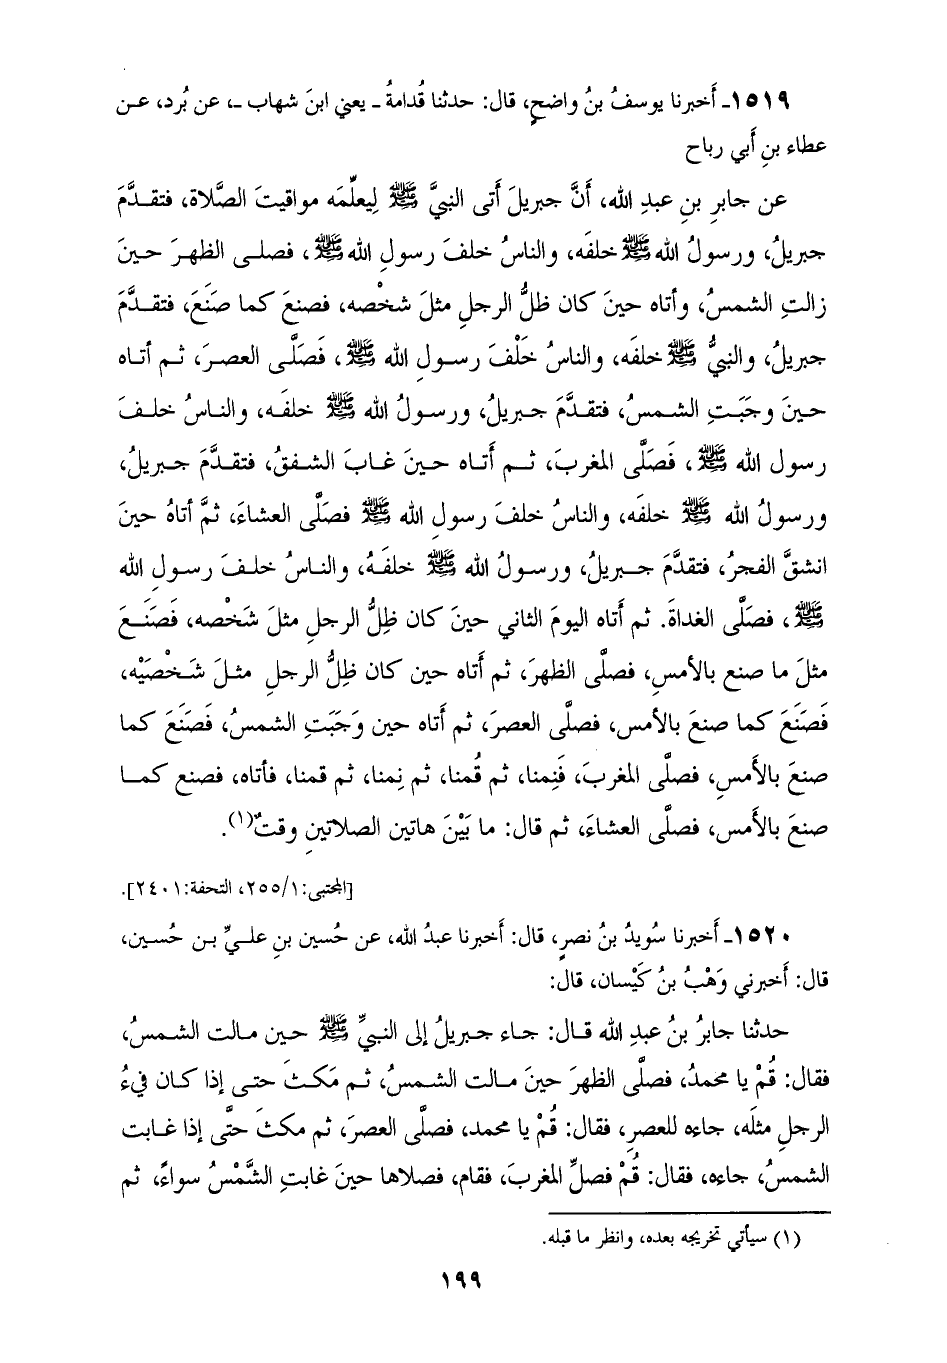 ١٥١٩ـ أَخبرنا يوسفُ بنُ واضحٍ، قال: حدثنا قُدامةُ ـ يعني ابنَ شهاب ـ، عن بُرد، عـن
عطاء بنِ أَبي رباح
عن جابرِ بنِ عبدِ الله، أَنَّ جبريلَ أَتى النبيَّ ﷺ لِيعلِّمَه مواقيتَ الصَّلاة، فتقـدَّمَ
جبريلُ، ورسولُ الله ﷺ خلفَه، والناسُ خلفَ رسولِ الله ﷺ، فصلـى الظهرَ حيـنَ
زالتِ الشمسُ، وأتاه حينَ كان ظلُّ الرجلِ مثلَ شخْصه، فصنعَ كما صَنَعَ، فتقـدَّم
جبريلُ، والنبيُّ ﷺ خلفَه، والناسُ خَلْفَ رسـولِ الله ﷺ، فَصَلَّى العصرَ، ثـم أتـاه
حينَ وجَبَتِ الشـمسُ، فتقـدَّمَ جبريلُ، ورسـولُ الله ﷺ خلفَـه، والنـاسُ خلـفَ
رسول الله ﷺ، فَصَلَّى المغربَ، ثـم أَتـاه حيـنَ غـابَ الشـفقُ، فتقـدَّمَ جـبريلُ،
ورسولُ الله ﷺ خلفَه، والناسُ خلفَ رسولِ الله ﷺ فصَلَّى العشاءَ، ثمَّ أتاهُ حينَ
انشقَّ الفجرُ، فتقدَّمَ جـبريلُ، ورسـولُ الله ﷺ خلفَـهُ، والنـاسُ خلـفَ رسـولِ الله
ﷺ، فصَلَّى الغداةَ. ثم أَتاه اليومَ الثاني حينَ كان ظِلُّ الرجلِ مثلَ شَخْصه، فَصَنَـعَ
مثلَ ما صنع بالأمسِ، فصلَّى الظهرَ، ثم أَتاه حين كان ظِلُّ الرجلِ مثـلَ شَـخْصَيْه،
فَصَنَعَ كما صنعَ بالأمس، فصلَّى العصرَ، ثم أَتاه حين وجَبَتِ الشمسُ، فَصَنَعَ كما
صنعَ بالأَمسِ، فصلَّى المغربَ، فَنِمنا، ثم قُمنا، ثم نِمنا، ثم قمنا، فأتاه، فصنع كمـا
صنعَ بالأَمس، فصلَّى العشاءَ، ثم قال: ما بَيْنَ هاتين الصلاتينِ وقتٌ(١).
[المجتبى: ٢٥٥/١، التحفة: ٢٤٠١].
١٥٢٠ـ أَخبرنا سُويدُ بنُ نصرٍ، قال: أَخبرنا عبدُ الله، عن حُسين بنِ علـيِّ بـن حُسين،
قال: أَخبرني وَهْبُ بنُ كَيْسان، قال:
حدثنا جابرُ بنُ عبدِ الله قـال: جـاء جبريلُ إلى النبـيِّ ﷺ حيـن مـالت الشـمسُ،
فقال: قُمْ يا محمدُ، فصلَّى الظهرَ حينَ مـالت الشـمسُ، ثـم مَكـثَ حتـى إذا كـان فيءُ
الرجلِ مثلَه، جاءه للعصرِ، فقال: قُمْ يا محمد، فصلَّى العصرَ، ثم مكثَ حتَّى إذا غـابت
الشمسُ، جاءه، فقال: قُمْ فصلِّ المغربَ، فقام، فصلاها حينَ غابتِ الشَّمْسُ سواءً، ثم
(١) سيأتي تخريجه بعده، وانظر ما قبله.
١٩٩